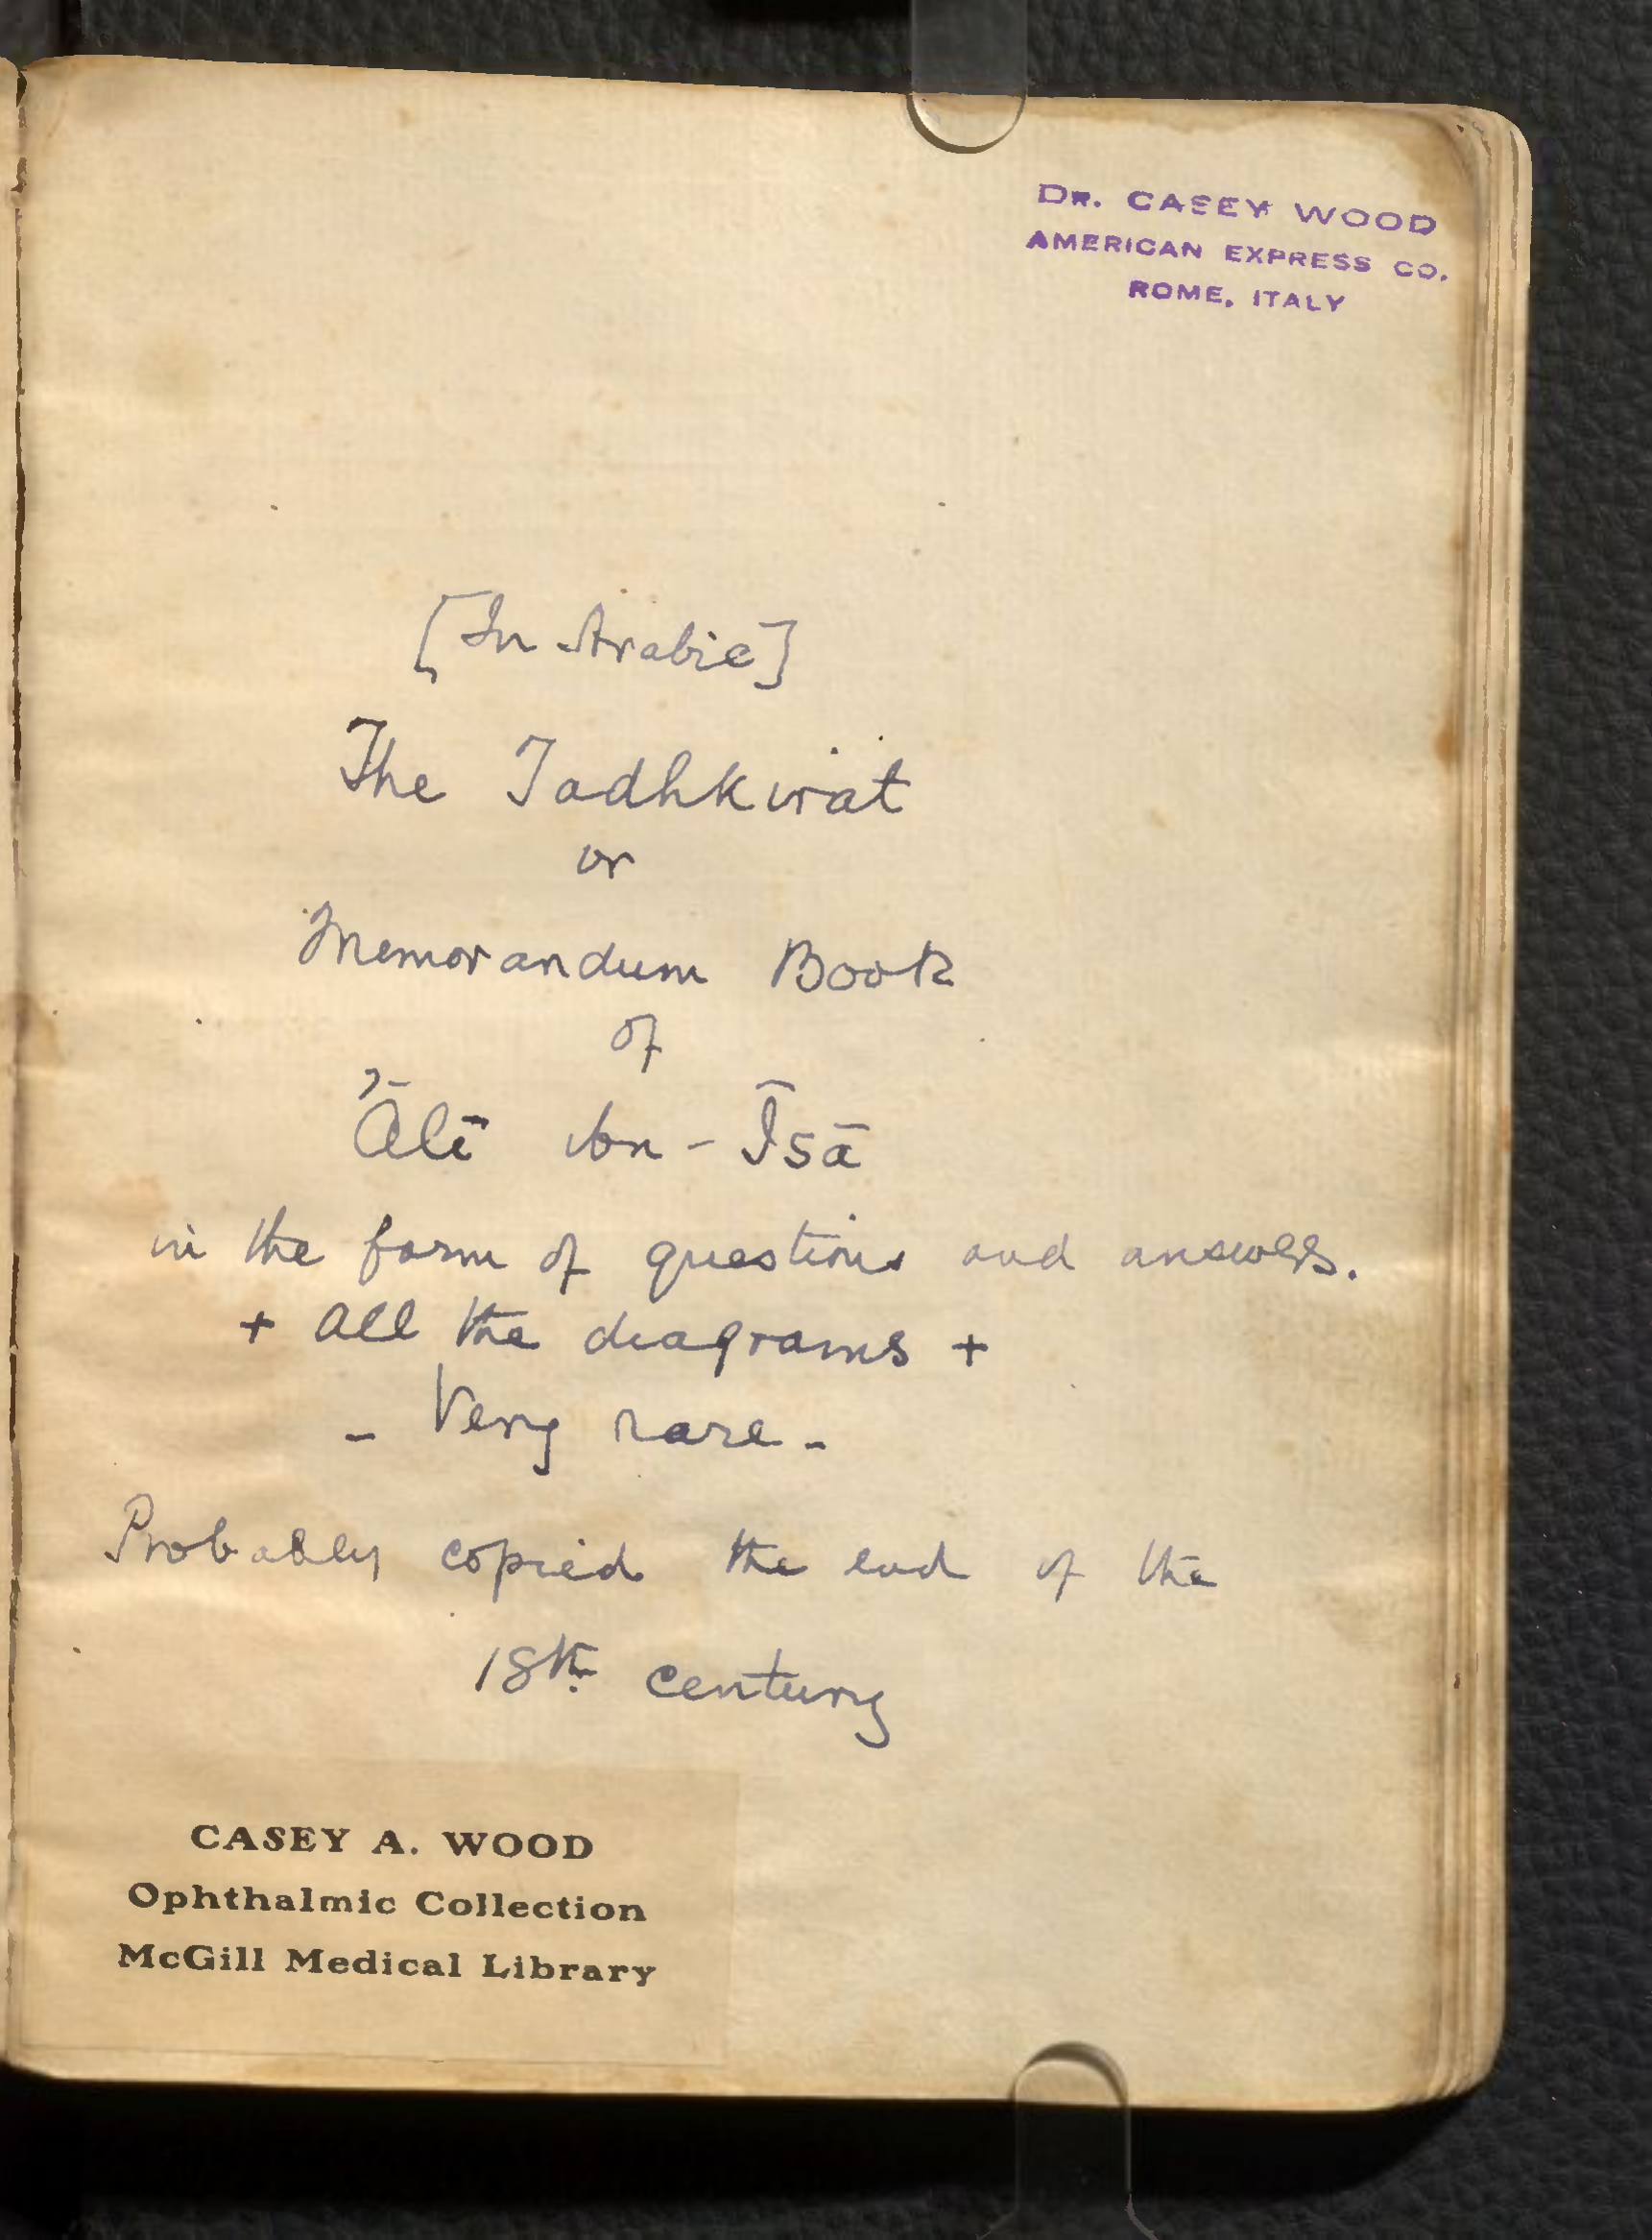 DR. CASEY WOOD
AMERICAN EXPRESS CO.
ROME, ITALY
[In Arabic]
The Tadhkirat
or
Memorandum Book
of
'Ālī ibn-Īsā
in the form of questions and answers.
+ All the diagrams +
- Very rare -
Probably copied the end of the
18th century
CASEY A. WOOD
Ophthalmic Collection
McGill Medical Library